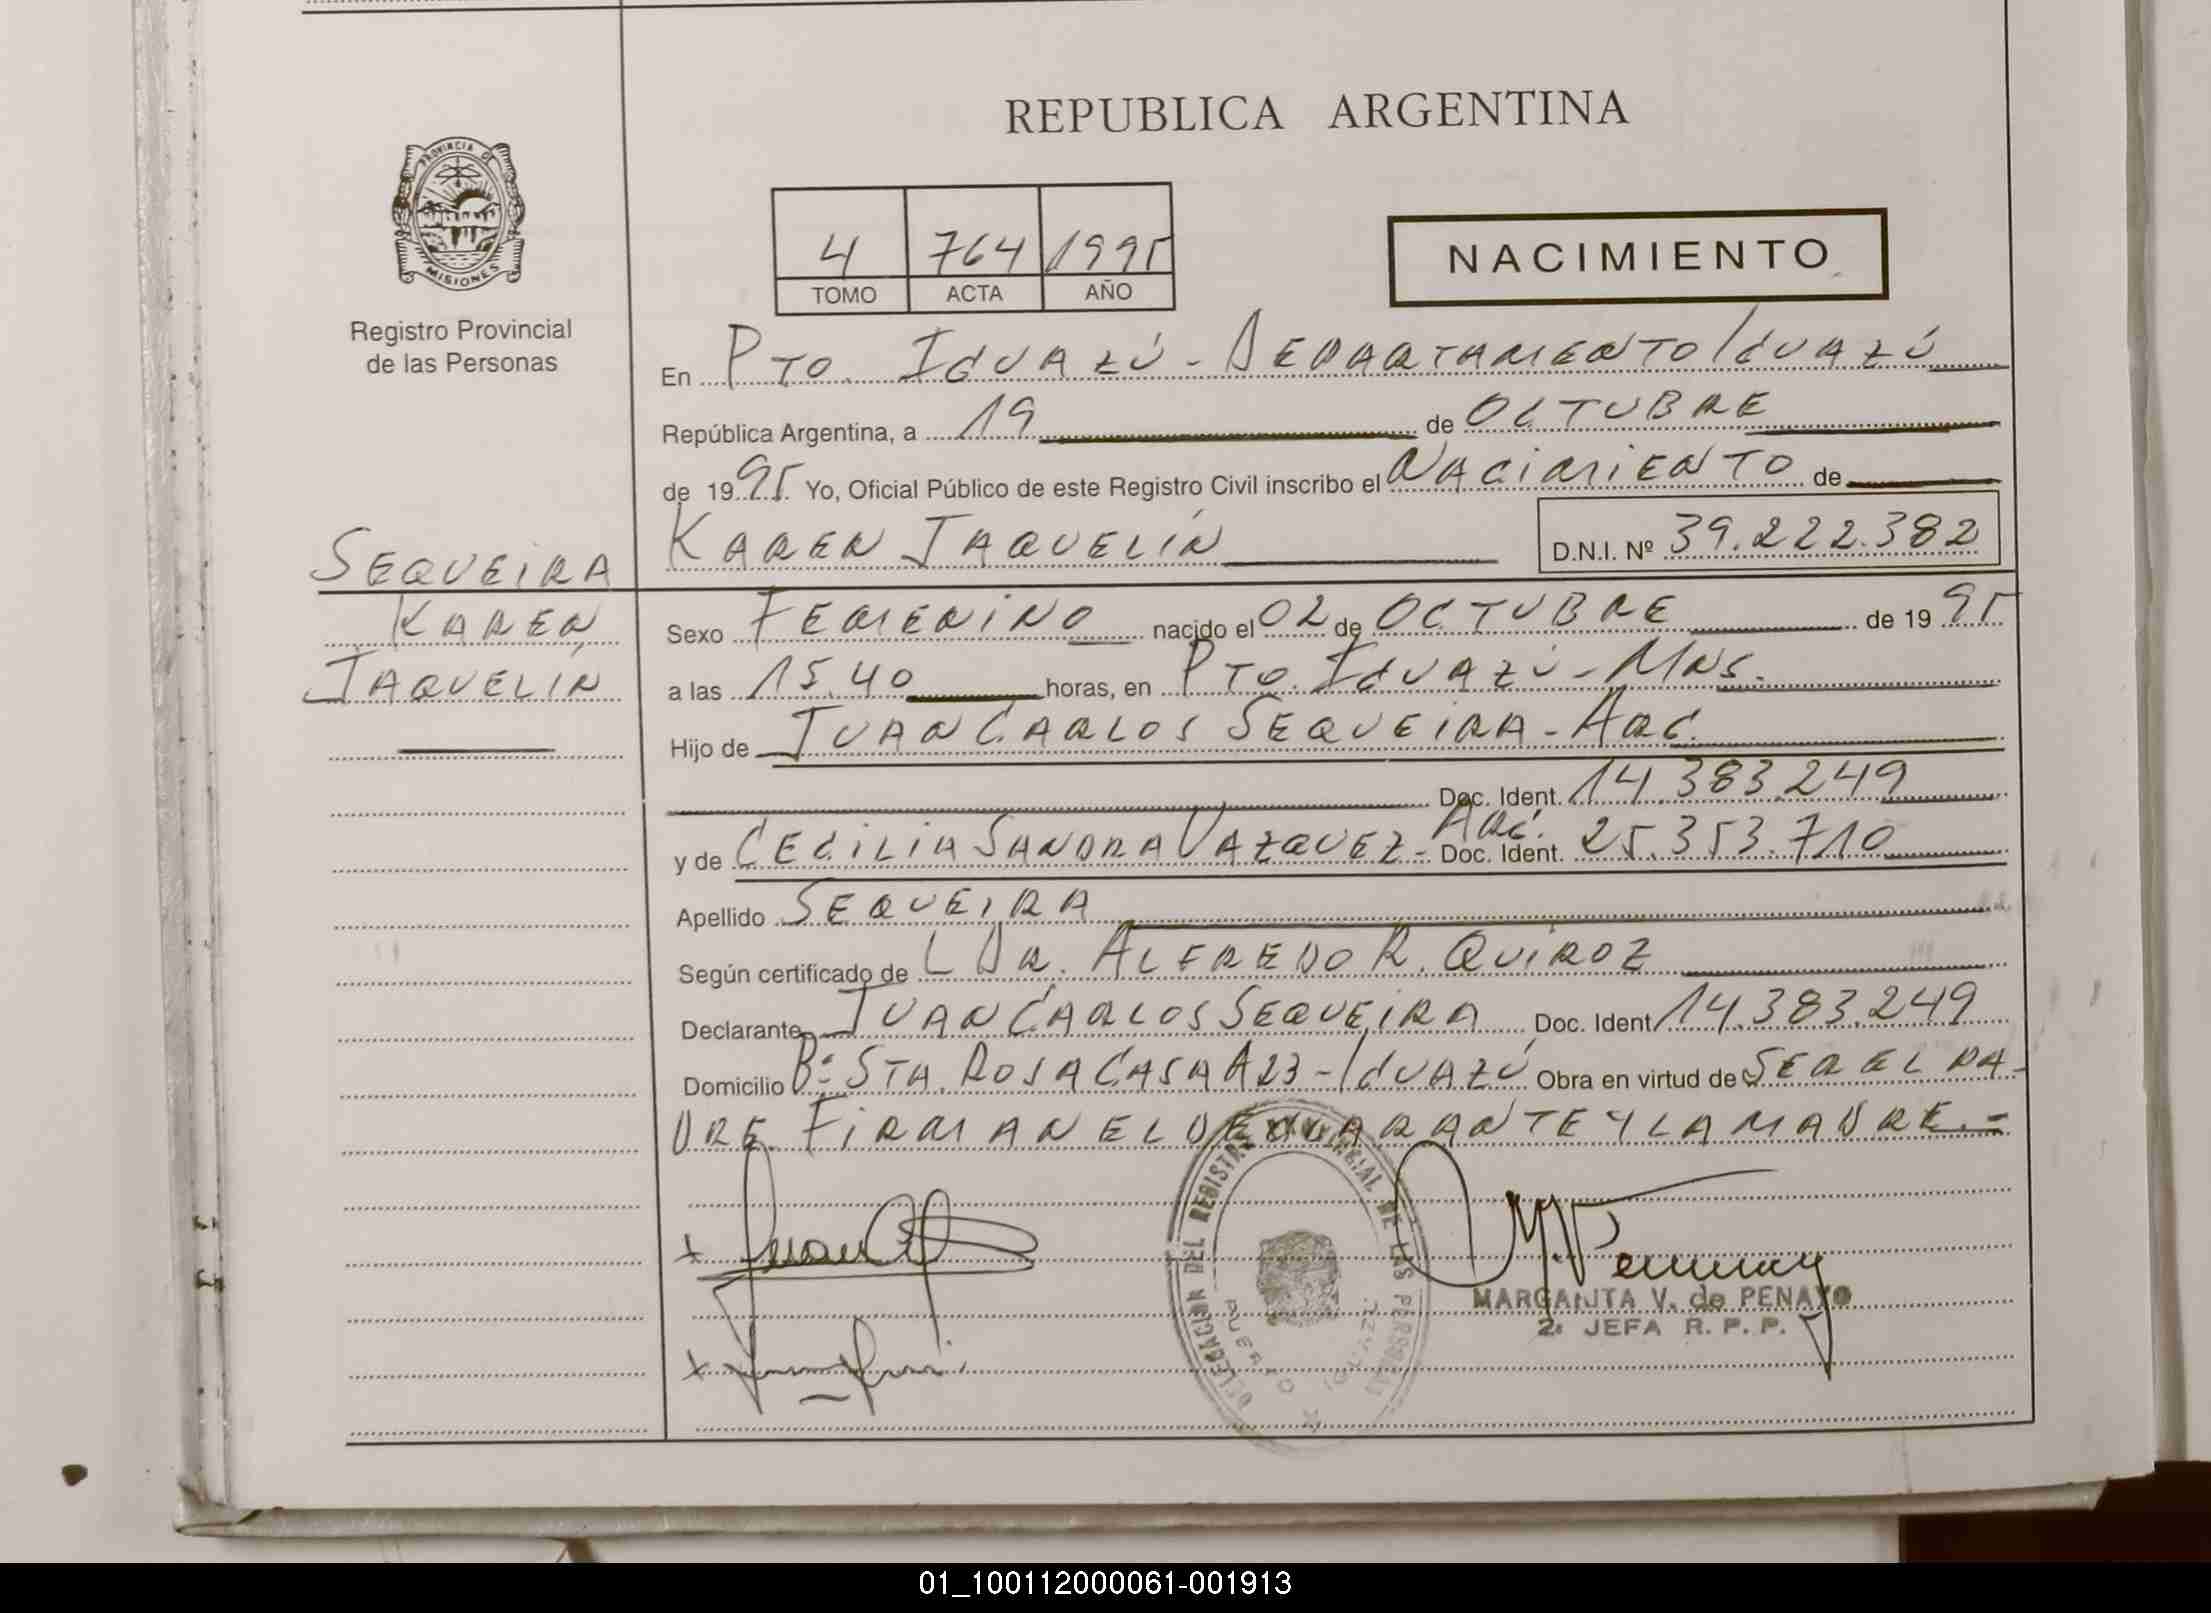 REPUBLICA ARGENTINA
PROVINCIA DE
MISIONES
Registro Provincial
de las Personas
4 764 1995
TOMO ACTA AÑO
NACIMIENTO
En PTO. IGUAZÚ - DEPARTAMENTO IGUAZÚ
República Argentina, a 19 de OCTUBRE
de 1995 Yo, Oficial Público de este Registro Civil inscribo el NACIMIENTO de
KAREN JAQUELÍN D.N.I. Nº 39.222.382
SEQUEIRA
KAREN
JAQUELÍN
Sexo FEMENINO nacido el 02 de OCTUBRE de 1995
a las 15.40 horas, en PTO. IGUAZÚ - MNS.
Hijo de JUAN CARLOS SEQUEIRA - ARG.
Doc. Ident. 14.383.249
y de CECILIA SANDRA VAZQUEZ - ARG. Doc. Ident. 25.353.710
Apellido SEQUEIRA
Según certificado de L DR. ALFREDO R. QUIROZ
Declarante JUAN CARLOS SEQUEIRA Doc. Ident 14.383.249
Domicilio Bº STA. ROSA CASA A23 - IGUAZÚ Obra en virtud de SER EL PA-
DRE. FIRMAN EL DECLARANTE Y LA MADRE.=
DELEGACION DEL REGISTRO PROVINCIAL DE LAS PERSONAS
PUERTO IGUAZU
MARGARITA V. de PENAYO
2º JEFA R. P. P.
01_100112000061-001913